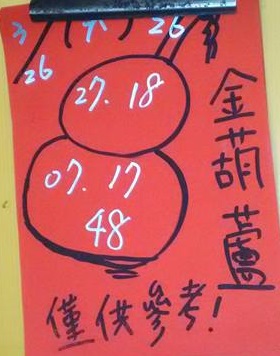 3/(六) 26
26
27. 18
07. 17
48
金葫蘆
僅供參考!